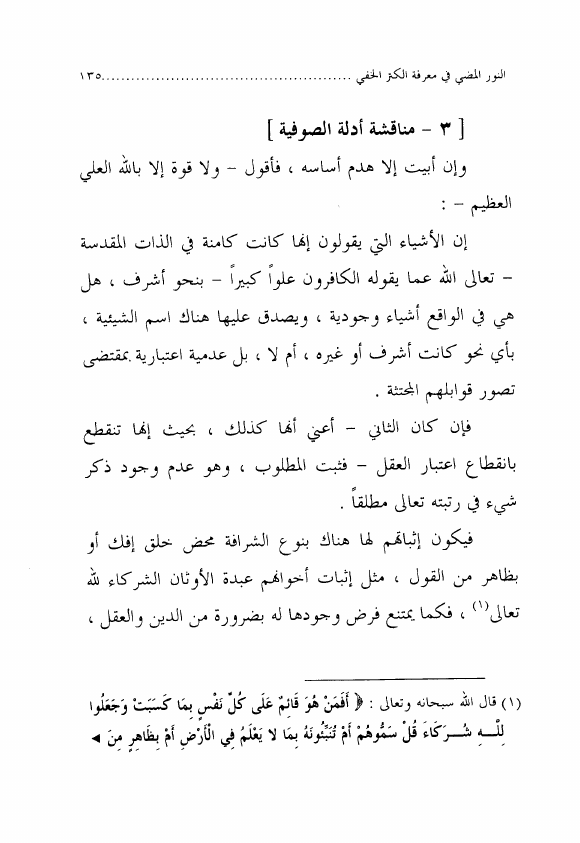 النور المضي في معرفة الكنز الخفي ..................................................١٣٥
[ ٣ - مناقشة أدلة الصوفية ]
وإن أبيت إلا هدم أساسه ، فأقول – ولا قوة إلا بالله العلي
العظيم – :
إن الأشياء التي يقولون إنها كانت كامنة في الذات المقدسة
– تعالى الله عما يقوله الكافرون علواً كبيراً – بنحو أشرف ، هل
هي في الواقع أشياء وجودية ، ويصدق عليها هناك اسم الشيئية ،
بأي نحو كانت أشرف أو غيره ، أم لا ، بل عدمية اعتبارية بمقتضى
تصور قوابلهم المجتثة .
فإن كان الثاني – أعني أنها كذلك ، بحيث إنها تنقطع
بانقطاع اعتبار العقل – فثبت المطلوب ، وهو عدم وجود ذكر
شيء في رتبته تعالى مطلقاً .
فيكون إثباتهم لها هناك بنوع الشرافة محض خلق إفك أو
بظاهر من القول ، مثل إثبات أخوانهم عبدة الأوثان الشركاء لله
تعالى(١) ، فكما يمتنع فرض وجودها له بضرورة من الدين والعقل ،
(١) قال الله سبحانه وتعالى : ﴿ أَفَمَنْ هُوَ قَائِمٌ عَلَى كُلِّ نَفْسٍ بِمَا كَسَبَتْ وَجَعَلُوا
لِلَّـــهِ شُـــرَكَاءَ قُلْ سَمُّوهُمْ أَمْ تُنَبِّئُونَهُ بِمَا لا يَعْلَمُ فِي الْأَرْضِ أَمْ بِظَاهِرٍ مِنَ ◄